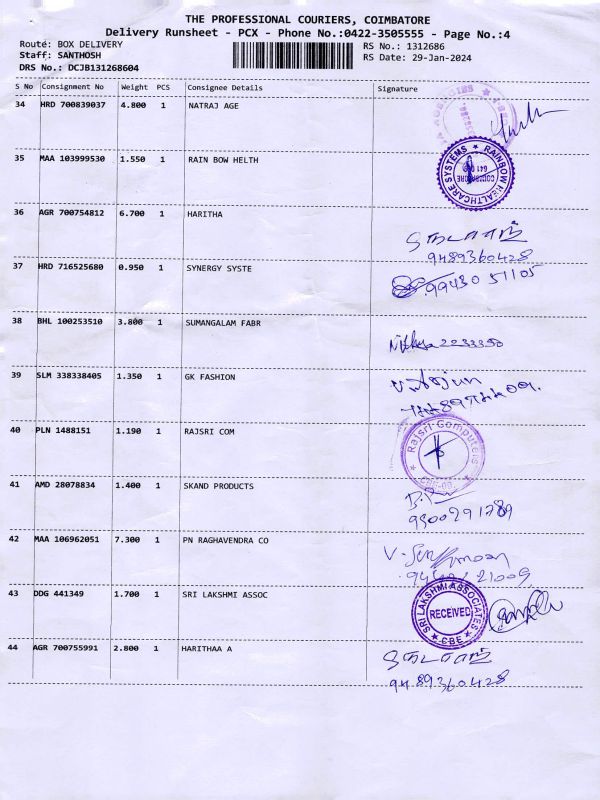 THE PROFESSIONAL COURIERS, COIMBATORE
Delivery Runsheet - PCX - Phone No.:0422-3505555 - Page No.:4
Route: BOX DELIVERY RS No.: 1312686
Staff: SANTHOSH RS Date: 29-Jan-2024
DRS No.: DCJB131268604
S No Consignment No Weight PCS Consignee Details Signature
34 HRD 700839037 4.800 1 NATRAJ AGE
35 MAA 103999530 1.550 1 RAIN BOW HELTH
RAINBOW HEALTHCARE SYSTEMS
36 AGR 700754812 6.700 1 HARITHA
9489360428
37 HRD 716525680 0.950 1 SYNERGY SYSTE
99430 51105
38 BHL 100253510 3.800 1 SUMANGALAM FABR
39 SLM 338338405 1.350 1 GK FASHION
40 PLN 1488151 1.190 1 RAJSRI COM
Rajsri Computers
41 AMD 28078834 1.400 1 SKAND PRODUCTS
42 MAA 106962051 7.300 1 PN RAGHAVENDRA CO
43 DDG 441349 1.700 1 SRI LAKSHMI ASSOC
SRI LAKSHMI ASSOCIATES
RECEIVED
CBE
44 AGR 700755991 2.800 1 HARITHAA A
9489360428